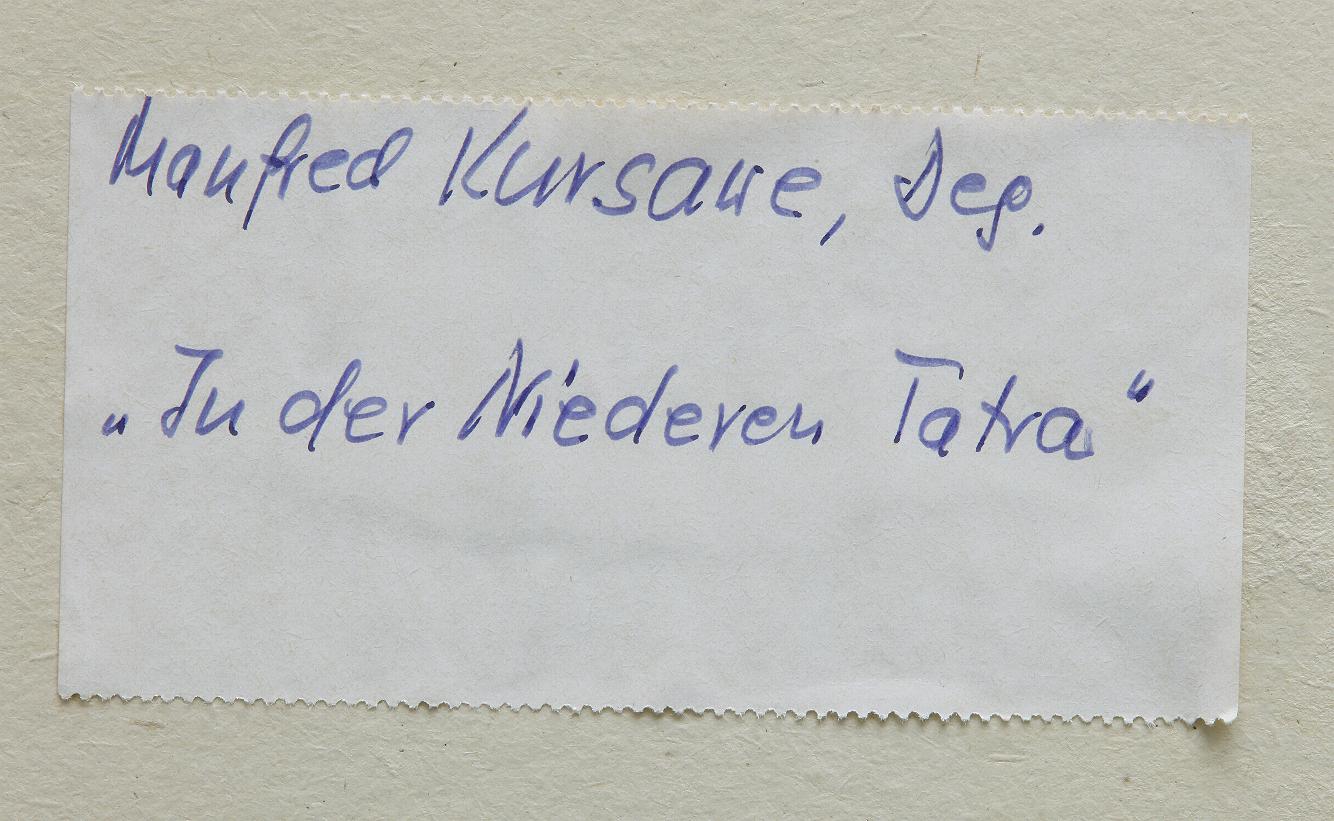 Manfred Kursawe, Deg.
„In der Niederen Tatra“